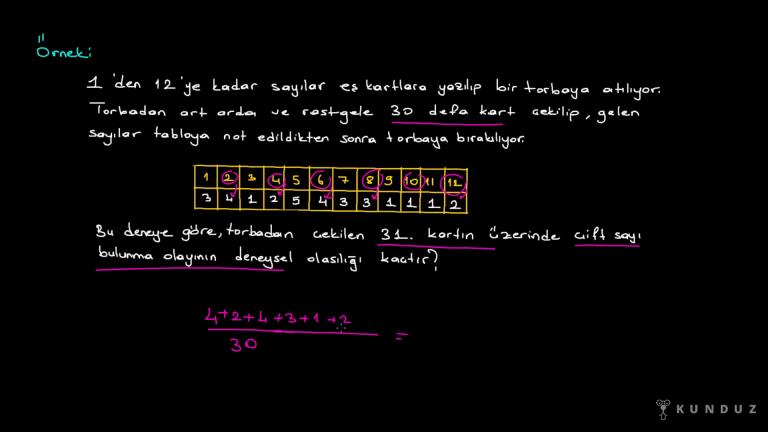 Örneki
1 'den 12 'ye kadar sayılar eş kartlara yazılıp bir torbaya atılıyor.
Torbadan art arda ve rastgele 30 defa kart çekilip, gelen
sayılar tabloya not edildikten sonra torbaya bırakılıyor.
1 2 3 4 5 6 7 8 9 10 11 12
3 4 1 2 5 4 3 3 1 1 1 2
Bu deneye göre, torbadan çekilen 31. kartın üzerinde çift sayı
bulunma olayının deneysel olasılığı kaçtır?
4+2+4+3+1+2
30 =
KUNDUZ